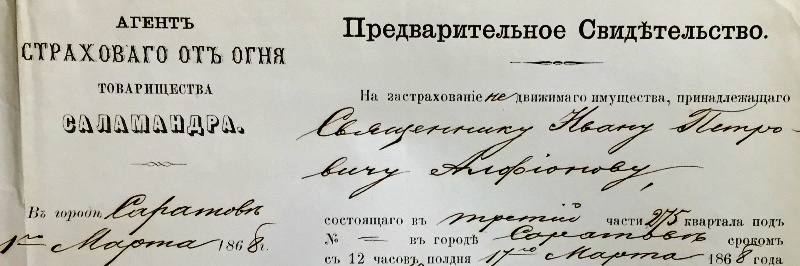 АГЕНТЪ
СТРАХОВАГО ОТЪ ОГНЯ
ТОВАРИЩЕСТВА
САЛАМАНДРА.
Въ городѣ Саратовѣ
1го Марта 1868 г.
Предварительное Свидѣтельство.
На застрахованіе не движимаго имущества, принадлежащаго
Священнику Ивану Петро-
вичу Алфіонову,
состоящаго въ третій части 275 квартала подъ
№ = въ городѣ Саратовѣ срокомъ
съ 12 часовъ полдня 17го Марта 1868 года